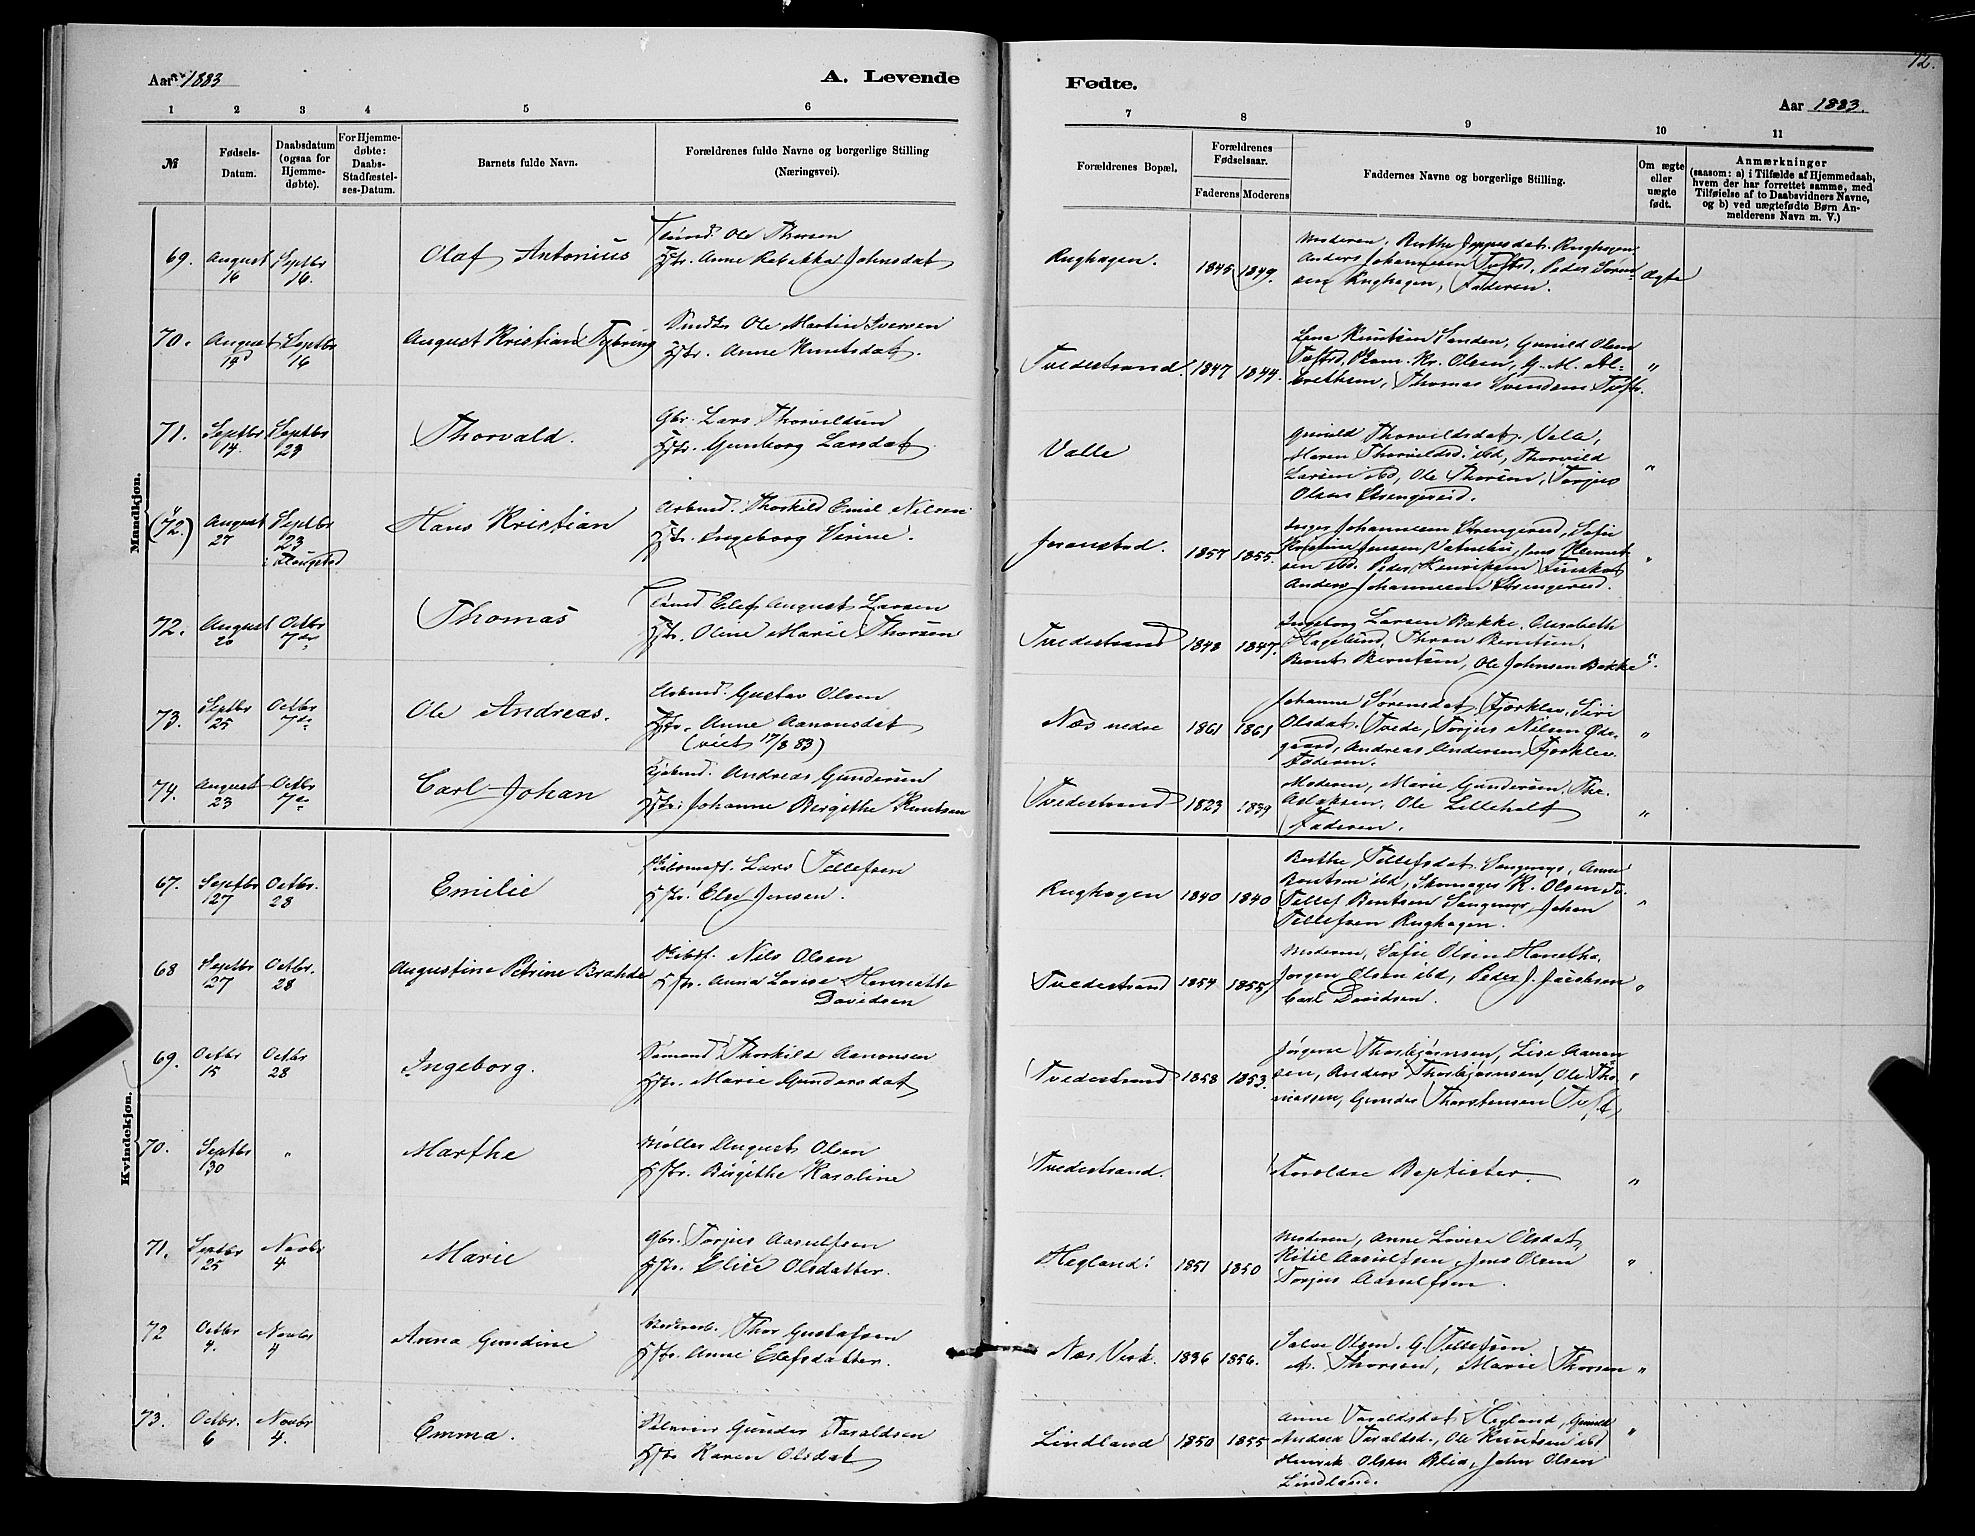 12.
Aar 1883
A. Levende
Fødte.
Aar 1883.
1 2 3 4 5 6 7 8 9 10 11
№
Fødsels-
Datum.
Daabsdatum
(ogsaa for
Hjemme-
døbte).
For Hjemme-
døbte:
Daabs-
Stadfæstel-
ses-Datum.
Barnets fulde Navn.
Forældrenes fulde Navne og borgerlige Stilling
(Næringsvei).
Forældrenes Bopæl.
Forældrenes
Fødselsaar.
Faderens Moderens
Faddernes Navne og borgerlige Stilling.
Om ægte
eller
uægte
født.
Anmærkninger
(saasom: a) i Tilfælde af Hjemmedaab,
hvem der har forrettet samme, med
Tilføielse af to Daabsvidners Navne,
og b) ved uægtefødte Børn An-
melderens Navn m. V.)
Mandkjøn.
69. August 16 Septbr 16. Olaf Antonius
Ole Thorsen
Hstr. Anne Rebekka Johnsdat
Rughagen. 1845 1849.
Moderen, Berthe Jeppesdat. Rughagen
Anders Johannesen Tvstrd, Peder Søren-
sen Rughagen, Faderen.
Ægte
70. August 19 Septbr 16 August Kristian Tybring
Ole Martin Iversen
Hstr. Anne Knutsdat.
Tvedestrand. 1847 1844.
Lena Knutsen Sanden, Gunild Olsen
Tvstrd, Kr. Olsen, G. M. Al-
brethsen, Thomas Svendsen Tvstr.
"
71. Septbr 14. Septbr 23 Thorvald.
Gbr. Lars Thorvildsen
Hstr. Gunborg Larsdat
Valle
Gunild Thorvildsdat. Valle,
Maren Thorvildsd. ibd, Thorvild
Larsen ibd, Ole Thorsen, Torjus
Olsen Strengereid.
"
(72.) August 27 Septbr 23 i Flougstad Hans Kristian
Arbmd. Thorkild Emil Nilsen
Hstr. Ingeborg Serine.
Joranstad. 1857 1855.
Inger Johannesen Strengereid, Sofie
Kristine Jensen Vatnebu, Jens
sen ibd. Peder Henriksen
Anders Johannesen Strengereid.
"
72. August 20 Octbr 7de Thomas
Elef August Larsen
Hstr. Oline Marie Thorsen
Tvedestrand 1848 1847.
Ingeborg Larsen Bakke, Elisabeth
Hagelund, Thron Berntsen,
Bernt Berntsen, Ole Johnsen Bakke
".
73. Septbr 25 Octbr 7de Ole Andreas.
Arbmd. Gustav Olsen
Hstr. Anne Aanonsdat
(viet 17/3 83)
Næs nedre 1861 1861
Johanne Sørensdat, Fjorklev, Siri
Olsdat. Tvede, Torjus Nilsen Øde-
gaard, Andreas Andersen Fjorklev.
Faderen.
"
74. August 23 Octbr 7de Carl Johan
Andreas Gundersen
Hstr. Johanne Birgithe Knutsen
Tvedestrand 1823 1839
Moderen, Marie Gundersen, The.
Aslaksen, Ole Lilleholt
Faderen.
"
Kvindekjøn.
67. Septbr 27 Octbr. 28 Emilie
Lars Tellefsen
Hstr. Else Jensen.
Rughagen 1840 1840
Berthe Tellefsdat. Songmyr, Anne
Bentsen ibd, Skomager K. Olsen Tv.
Tellef Bentsen Songmyr, Johan
Tellefsen Rughagen.
"
68 Septbr 27 Octbr. 28 Augustine Petrine Brahde
Nils Olsen
Hstr. Anna Lovise Henriette
Davidsen
Tvedestrand 1854 1855
Moderen, Sofie Olsen Hanetho,
Jørgen Olsen ibd, Peder J. Jacobsen
Carl Davidsen.
"
69. Octbr 15 Octbr 28 Ingeborg.
Sømand Thorkild Aanonsen
Hstr. Marie Gundersdat
Tvedestrand 1858 1853.
Jørgine Thorbjørnsen, Lise Aanon-
sen, Anders Thorbjørnsen, Ole Tho-
massen, Gunder Thorstensen Tvstd,
"
70. Septbr 30 " Marthe
Møller August Olsen
Hstr. Birgithe Karoline
Tvedestrand.
Foreldre Baptister.
"
71. Septbr 25 Novbr 4 Marie
Gbr. Torjus Aasulfsen
Hstr. Elise Olsdatter.
Hegland. 1851 1850
Moderen, Anne Lovise Olsdat,
Ketil Aasulfsen, Jens Olsen
Torjus Aasulfsen.
"
72 Octbr 4. Novbr 4 Anna Gundine
Thor Gustafsen
Hstr. Anne Elefsdatter.
Næs Verk. 1836 1856.
Salve Olsen. G. Tellefsen.
A. Thorsen, Marie Thorsen
"
73. Octbr. 6 Novbr 4. Emma.
Gunder Taraldsen
Hstr Karen Olsdat
Lindland 1850 1855
Anne Taraldsdat Hegland, Gunild
Andrea Taraldsd., Ole Knutsen ibd
Henrik Olsen Blia, John Olsen
Lindland.
"